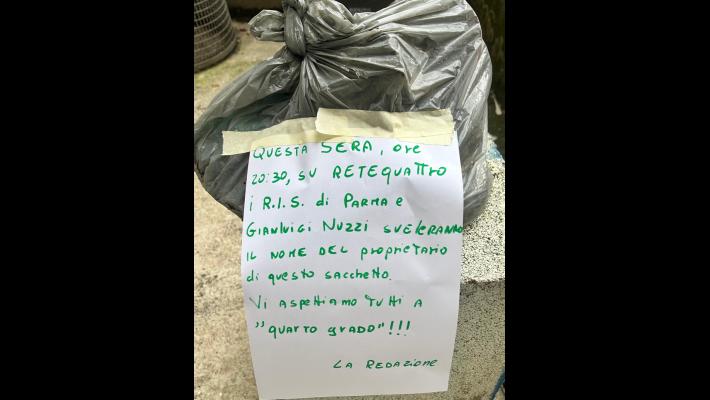 QUESTA SERA, ore
20:30, SU RETEQUATTRO
i R.I.S. di PARMA e
GIANLUIGI NUZZI SVELERANNO
IL NOME DEL proprietario
di questo sacchetto.
Vi aspettiamo tutti a
"QUARTO GRADO"!!!
LA REDAZIONE